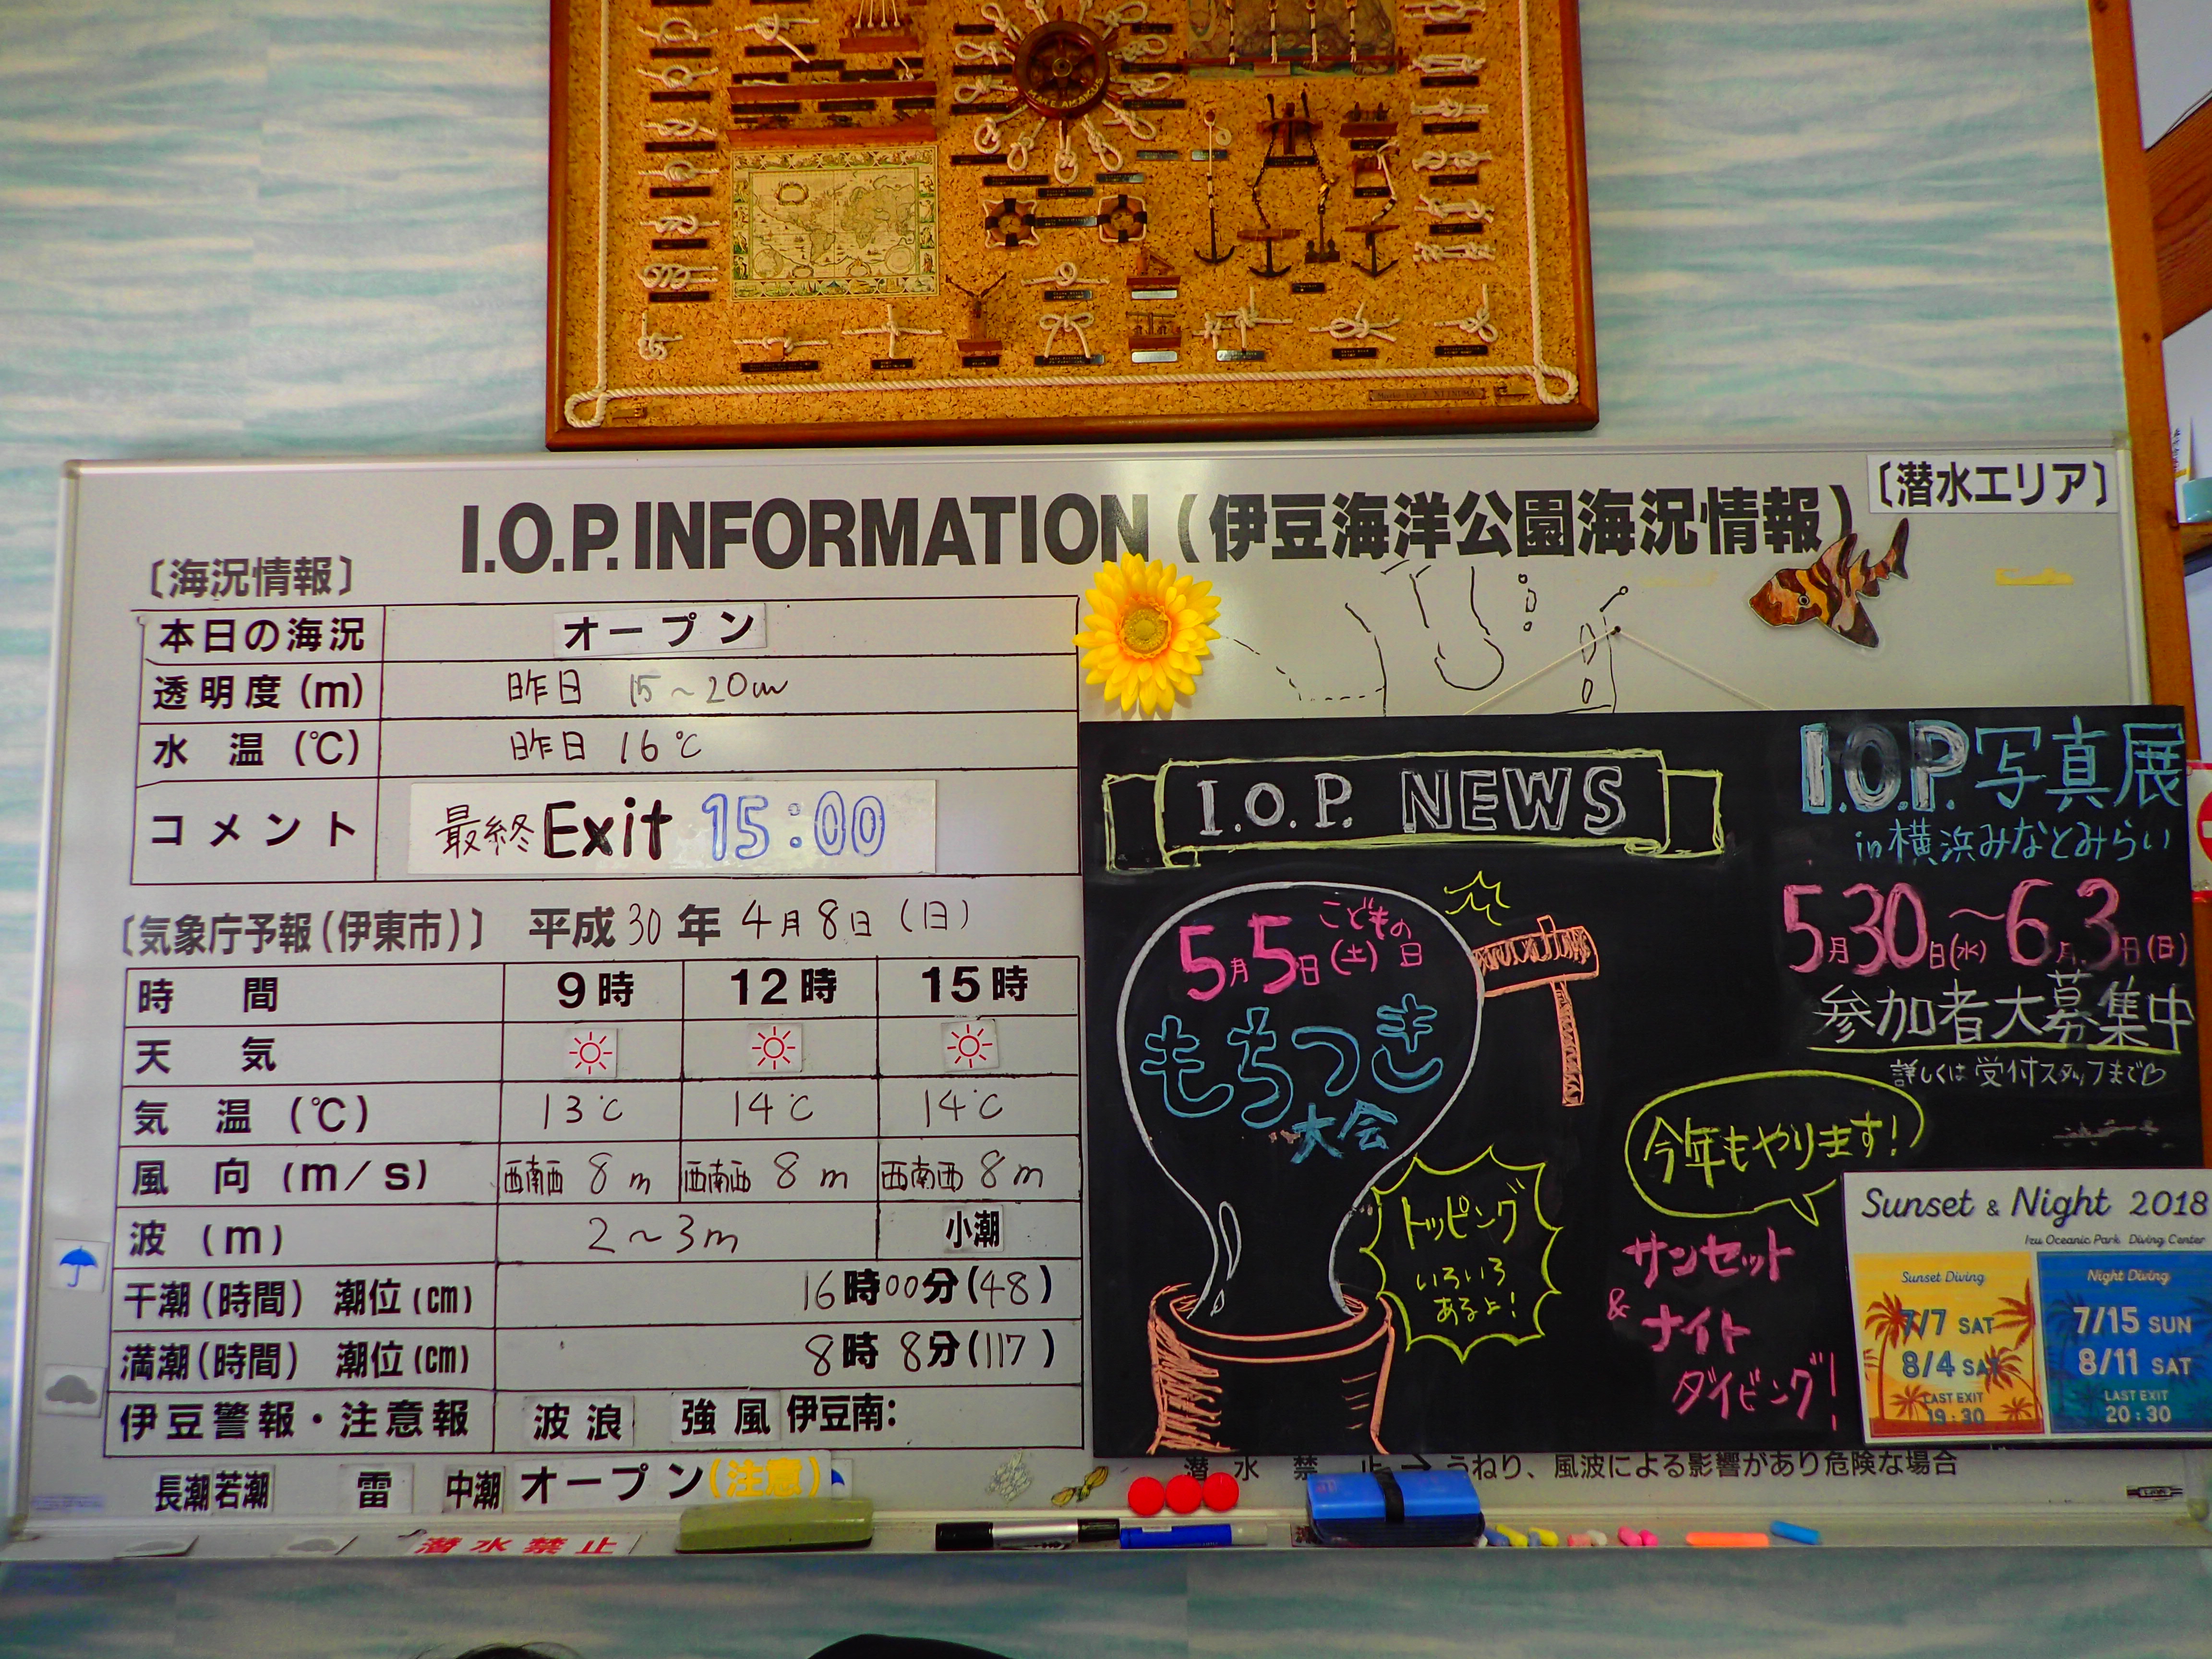 I.O.P. INFORMATION (伊豆海洋公園海況情報)
〔潜水エリア〕
〔海況情報〕
本日の海況 オープン
透明度(m) 昨日 15~20m
水温(℃) 昨日 16℃
コメント 最終 Exit 15:00
〔気象庁予報(伊東市)〕 平成30年 4月8日(日)
時間 9時 12時 15時
天気
気温(℃) 13℃ 14℃ 14℃
風向(m/s) 西南西 8m 西南西 8m 西南西 8m
波(m) 2~3m 小潮
干潮(時間) 潮位(cm) 16時00分(48)
満潮(時間) 潮位(cm) 8時8分(117)
伊豆警報・注意報 波浪 強風 伊豆南:
長潮 若潮 雷 中潮 オープン(注意)
潜水禁止
I.O.P. NEWS
5月5日(土)こどもの日
もちつき
大会
トッピング
いろいろ
あるよ!
I.O.P.写真展
in 横浜みなとみらい
5月30日(水)~6月3日(日)
参加者大募集中
詳しくは受付スタッフまで♡
今年もやります!
サンセット
&ナイト
ダイビング!
Sunset & Night 2018
Izu Oceanic Park Diving Center
Sunset Diving
7/7 SAT
8/4 SAT
LAST EXIT
19:30
Night Diving
7/15 SUN
8/11 SAT
LAST EXIT
20:30
潜水禁止→うねり、風波による影響があり危険な場合